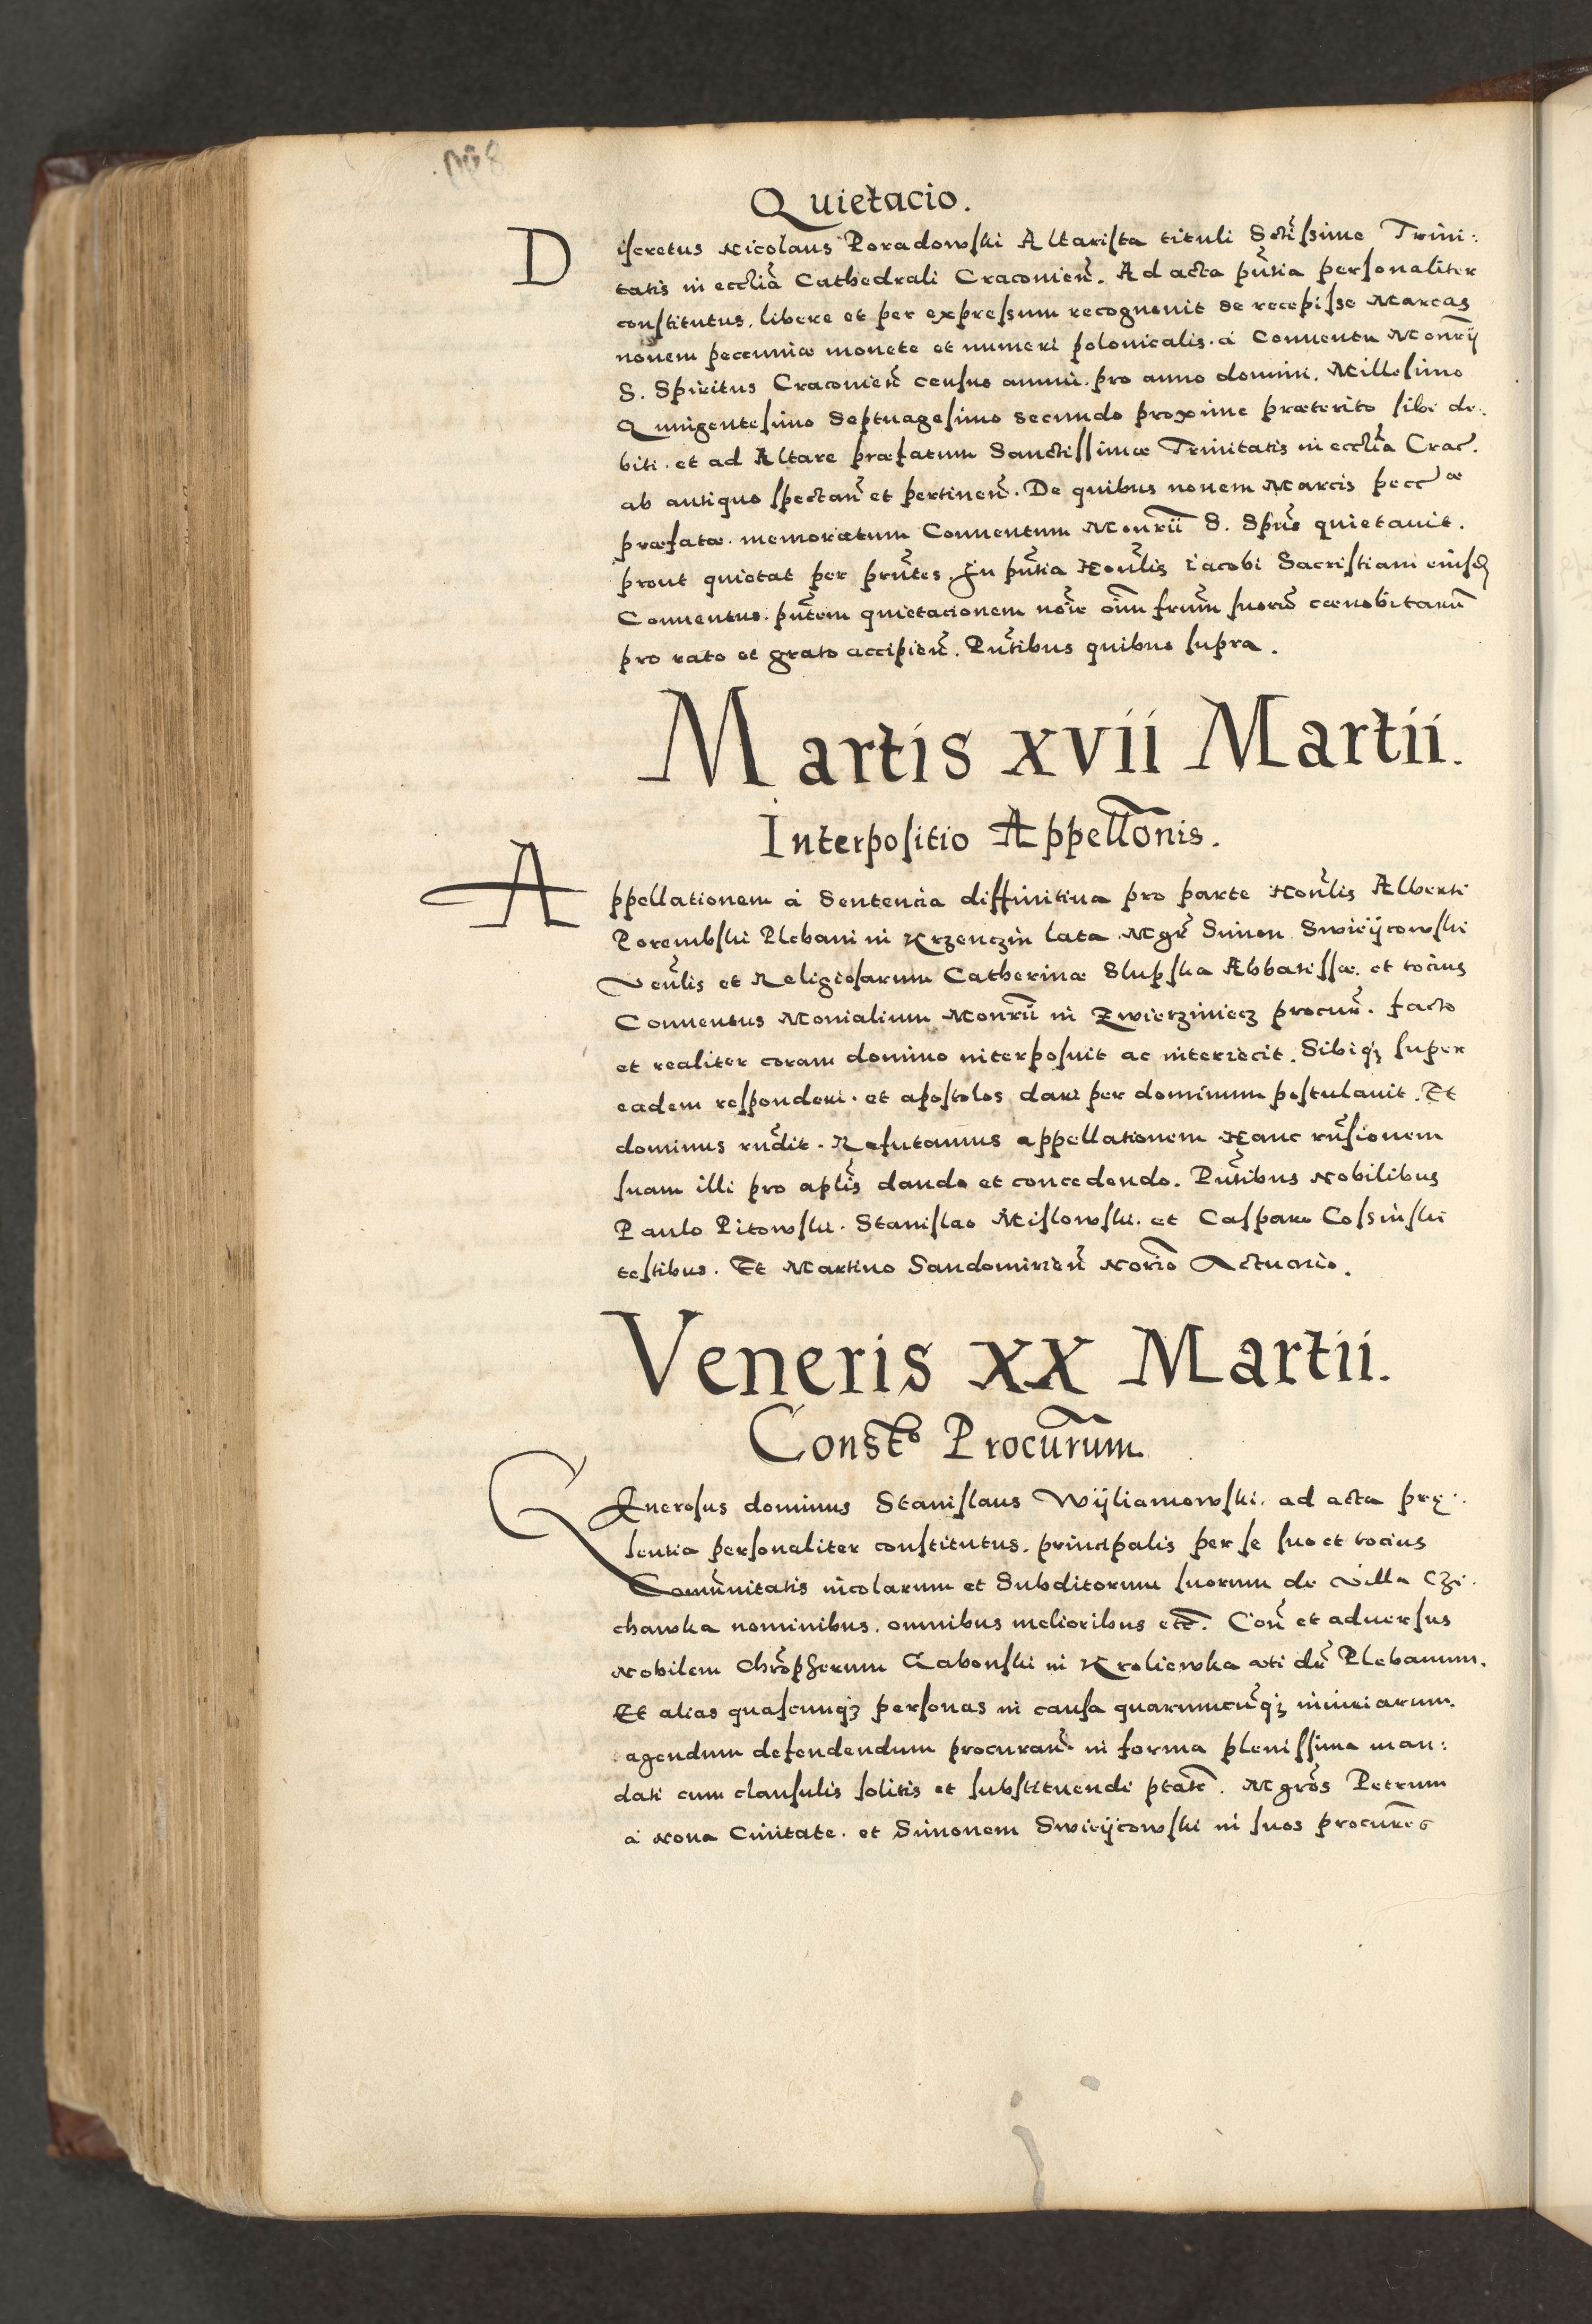 Quietacio.
Discretus Nicolaus Poradowski Altarista tituli Sctissime Trini:
tatis in ecclia Cathedrali Cracovien. Ad acta pntia personaliter
constitutus, libere et per expressum recognovit se recepisse Marcas
novem pecuniæ monete et numeri polonicalis. à Conventu Monrij
S. Spiritus Cracovien census annui. pro anno domini. Millesimo
Quingentesimo Septuagesimo secundo proxime præterito sibi de:
biti. et ad Altare præfatum Sanctissimæ Trinitatis in ecclia Crac.
ab antiquo spectan et pertinen. De quibus novem Marcis pecc æ
præfatæ. memoratum Conventum Monrii S. Spus quietavit.
prout quietat per prntes. In pntia Honlis Iacobi Sacristiani eiusd
Conventus. pntem quietacionem noie oim frum suoru cænobitaru
pro rato et grato accipien. Pntibus quibus supra.
Martis xvii Martii.
Interpositio Appellonis.
Appellationem à Sentencia diffinitiva pro parte Honlis Alberti
Porembski Plebani in Krzenczin lata Mgr Simon Swieijcowski
Venlis et Religiosarum Catherinæ Slupska Abbatissæ. et tocius
Conventus Monialium Monrii in Zwierziniecz procur. facto
et realiter coram domino interposuit ac interiecit. Sibiq3 super
eadem responderi. et apostolos dari per dominum postulavit. Et
dominus rndit. Refutamus appellationem Hanc rnsionem
suam illi pro aplis dando et concedendo. Pntibus Nobilibus
Paulo Pitowski. Stanislao Mislowski. et Caspare Cossinski
testibus. Et Martino Sandomirien Norio Actuario.
Veneris xx Martii.
Constō Procurum
Generosus dominus Stanislaus Wijliamowski. ad acta prę:
sentia personaliter constitutus. principalis per se suo et tocius
Comunitatis incolarum et Subditorum suorum de villa Czi:
chawka nominibus. omnibus melioribus etc. Con et adversus
Nobilem Chropherum Gabonski in Kroliewka Plebanum.
Et alias quascunq3 personas in causa quarumcuq3 iniuriarum.
agendum defendendum procuran. in forma plenissima man:
dati cum clausulis solitis et substituendi ptate. Mgros Petrum
à Nova Civitate. et Simonem Swieijcowski in suos procures